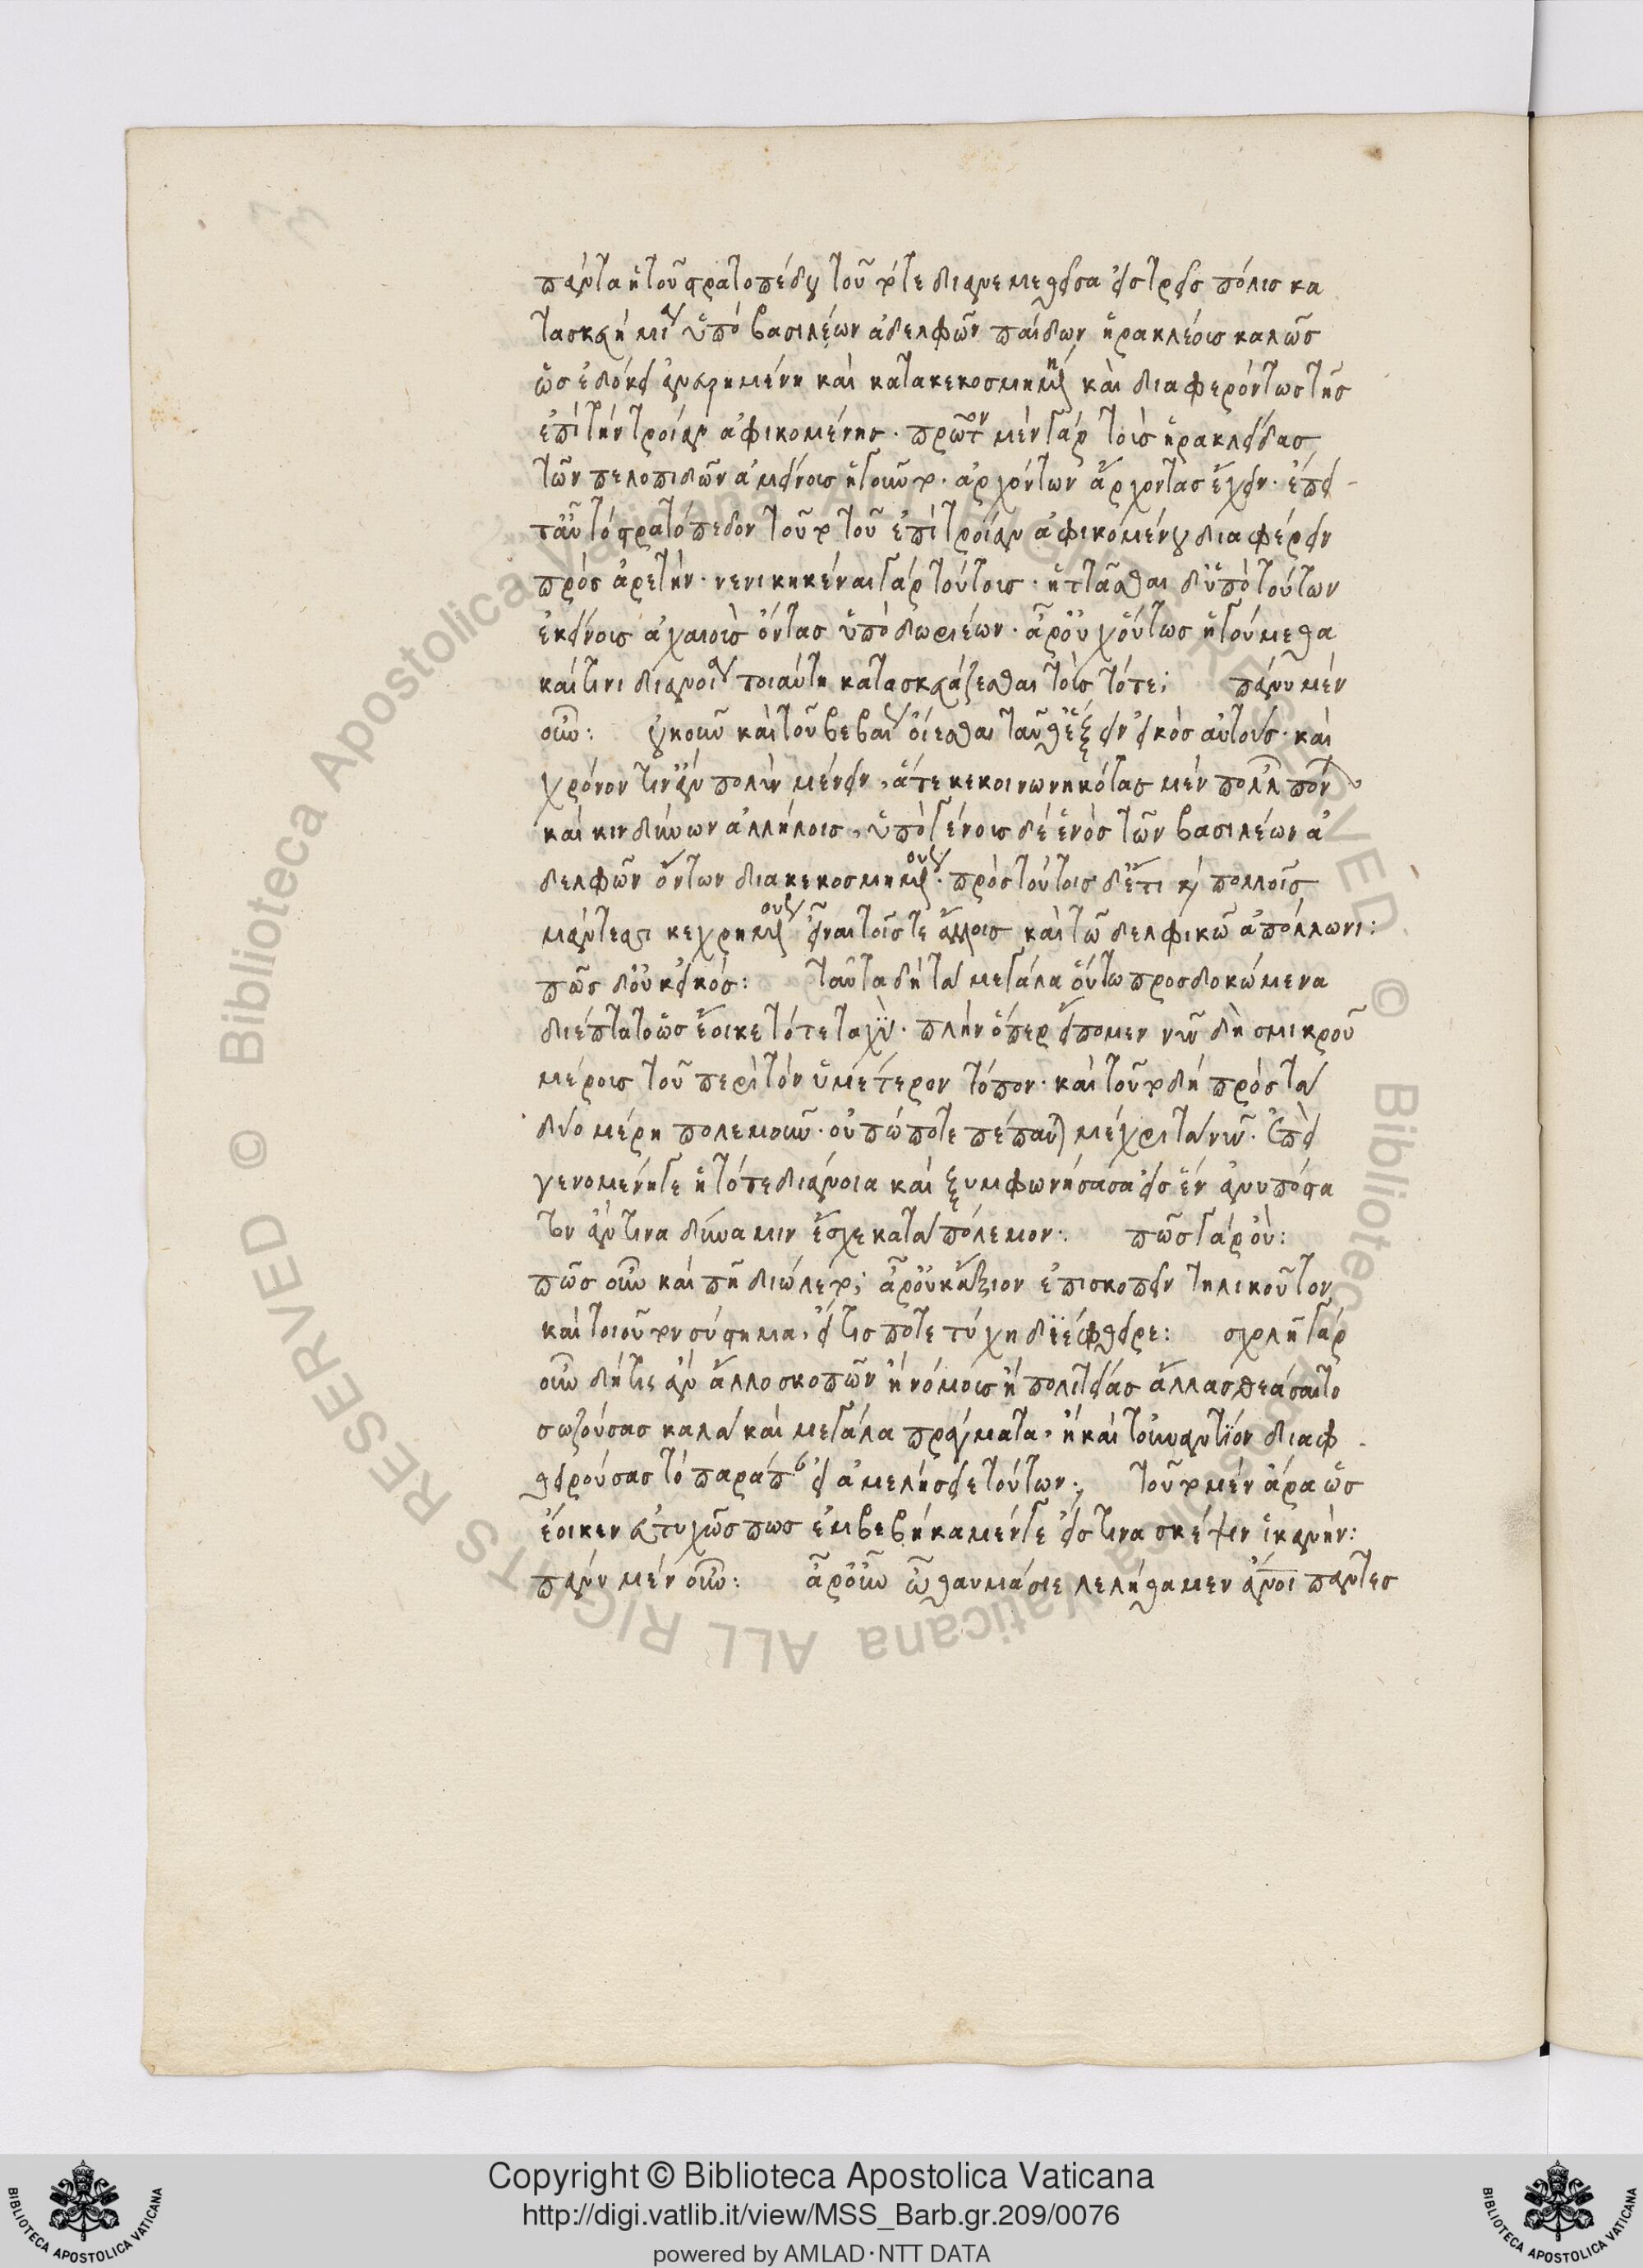 πάντα ἡ τοῦ στρατοπέδου τοῦ τότε διανεμηθεῖσα εἰς τρεῖς πόλεις κα
τασκευὴ μία ὑπὸ βασιλέων ἀδελφῶν παίδων ἡρακλέους καλῶς
ὡς ἐδόκει ἀνευρημένη καὶ κατακεκοσμημένη καὶ διαφερόντως τῆς
ἐπὶ τὴν τροίαν ἀφικομένης· πρῶτον μὲν γὰρ τοὺς ἡρακλείδας
τῶν πελοπιδῶν ἀμείνους ἡγοῦντο· ἀρχόντων ἄρχοντας ἔχειν· ἔπει
τ' αὖ τὸ στρατόπεδον τοῦτο τοῦ ἐπὶ τροίαν ἀφικομένου διαφέρειν
πρὸς ἀρετήν· νενικηκέναι γὰρ τούτους· ἡττᾶσθαι δ' ὑπὸ τούτων
ἐκείνους ἀχαιοὺς ὄντας ὑπὸ δωριέων· ἆρ' οὐχ οὕτως ἡγούμεθα
καί τινι διανοίᾳ τοιαύτῃ κατασκευάζεσθαι τοὺς τότε; πάνυ μὲν
οὖν: οὐκοῦν καὶ τοῦ βεβαίου οἴεσθαι ταῦθ' ἕξειν εἰκὸς αὐτούς· καὶ
χρόνον τιν' ἂν πολὺν μένειν, ἅτε κεκοινωνηκότας μὲν πολλῶν πόνων
καὶ κινδύνων ἀλλήλοις, ὑπὸ γένους δὲ ἑνὸς τῶν βασιλέων ἀ
δελφῶν ὄντων διακεκοσμημένους· πρὸς τούτοις δ' ἔτι καὶ πολλοῖς
μάντεσι κεχρημένους εἶναι τοῖς τε ἄλλοις καὶ τῶ δελφικῶ ἀπόλλωνι:
πῶς δ' οὐκ εἰκός: ταῦτα δὴ τὰ μεγάλα οὕτω προσδοκώμενα
διέπτατο ὡς ἔοικε τότε ταχὺ· πλὴν ὅπερ εἴπομεν νῦν δὴ σμικροῦ
μέρους τοῦ περὶ τὸν ὑμέτερον τόπον· καὶ τοῦτο δὴ πρὸς τὰ
δύο μέρη πολεμοῦν· οὐ πώποτε πέπαυται μέχρι τὰ νῦν· Ἐπεὶ
γενομένη γε ἡ τότε διάνοια καὶ ξυμφωνήσασα εἰς ἓν ἀνυπόστα
τον ἄν τινα δύναμιν ἔσχε κατὰ πόλεμον: πῶς γὰρ οὔ:
πῶς οὖν καὶ πῆ διώλετο; ἆρ' οὐκ ἄξιον ἐπισκοπεῖν τηλικοῦτον
καὶ τοιοῦτον σύστημα, εἴ τις ποτὲ τύχη διέφθειρε: σχολῇ γὰρ
οὖν δή τις ἂν ἄλλο σκοπῶν ἢ νόμους ἢ πολιτείας ἄλλας θεάσαιτο
σωζούσας καλὰ καὶ μεγάλα πράγματα, ἢ καὶ τοὐναντίον διαφ
θειρούσας τὸ παράπαν εἰ ἀμελήσειε τούτων: τοῦτο μὲν ἄρα ὡς
ἔοικεν εὐτυχῶς πως ἐμβεβήκαμέν γε εἴς τινα σκέψιν ἱκανήν:
πάνυ μὲν οὖν: ἆρ' οὖν ὦ θαυμάσιε λελήθαμεν ἄνοι πάντες
Copyright © Biblioteca Apostolica Vaticana
http://digi.vatlib.it/view/MSS_Barb.gr.209/0076
powered by AMLAD·NTT DATA
BIBLIOTECA APOSTOLICA VATICANA
BIBLIOTECA APOSTOLICA VATICANA
© Biblioteca Apostolica Vaticana ALL RIGHTS RESERVED © Biblioteca Apostolica Vaticana ALL RIGHTS RESERVED